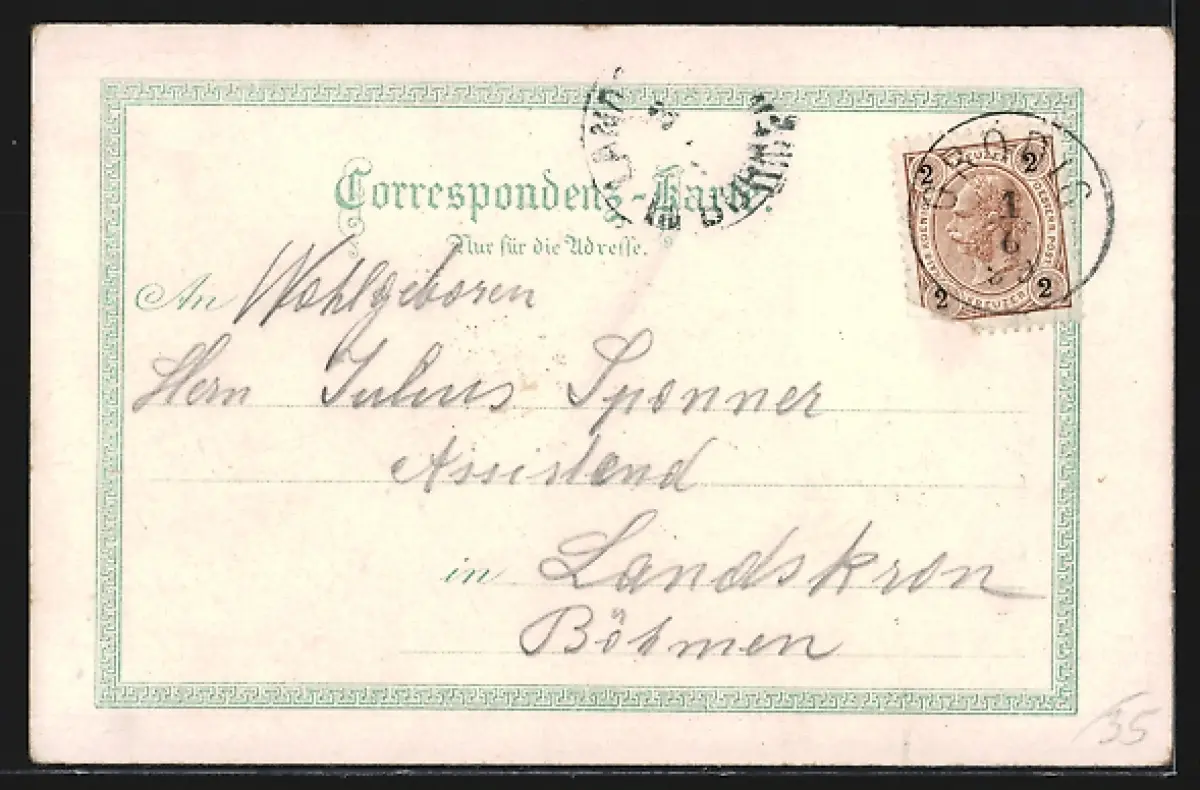 Correspondenz-Karte.
Nur für die Adresse.
An Wohlgeboren
Herrn Julius Sponner
Assistend
in Landskron
Böhmen
2 KREUZER 2
2 KREUZER 2
1
6
35